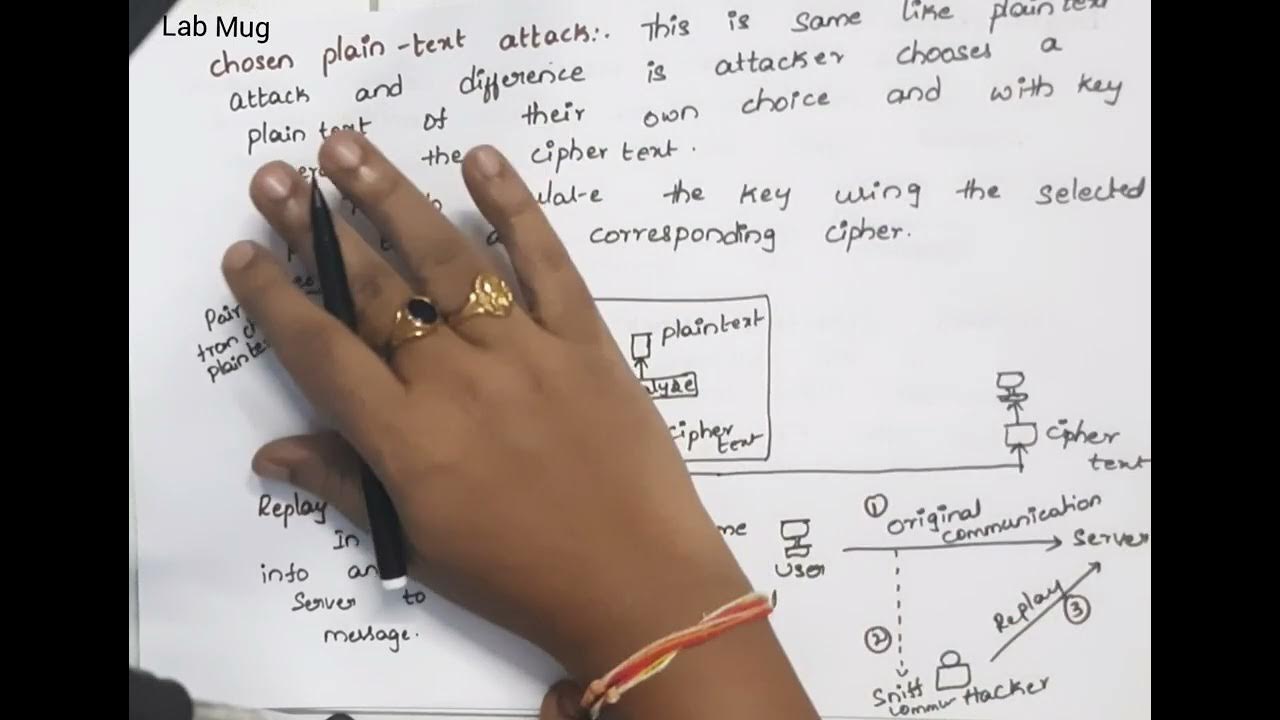 Lab Mug
chosen plain-text attack:. This is same like plain text
attack and difference is attacker chooses a
plain text of their own choice and with key
the cipher text.
the key using the selected
corresponding cipher.
Pair
plain te
plaintext
cipher
text
cipher
text
Replay
In
info an
Server to
message.
me
User
① original
communication
Server
②
Replay
③
Sniff
commun
Hacker